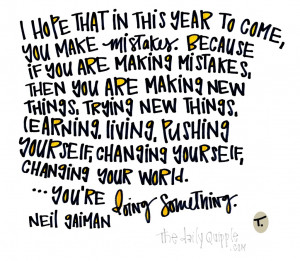 I HOPE THAT IN THIS YEAR TO COME,
YOU MAKE MISTAKES. BECAUSE
IF YOU ARE MAKING MISTAKES,
THEN YOU ARE MAKING NEW
THINGS, TRYING NEW THINGS,
LEARNING, LIVING, PUSHING
YOURSELF, CHANGING YOURSELF,
CHANGING YOUR WORLD.
...YOU'RE doing something.
NEIL GAIMAN
T.
the daily quipple
.COM